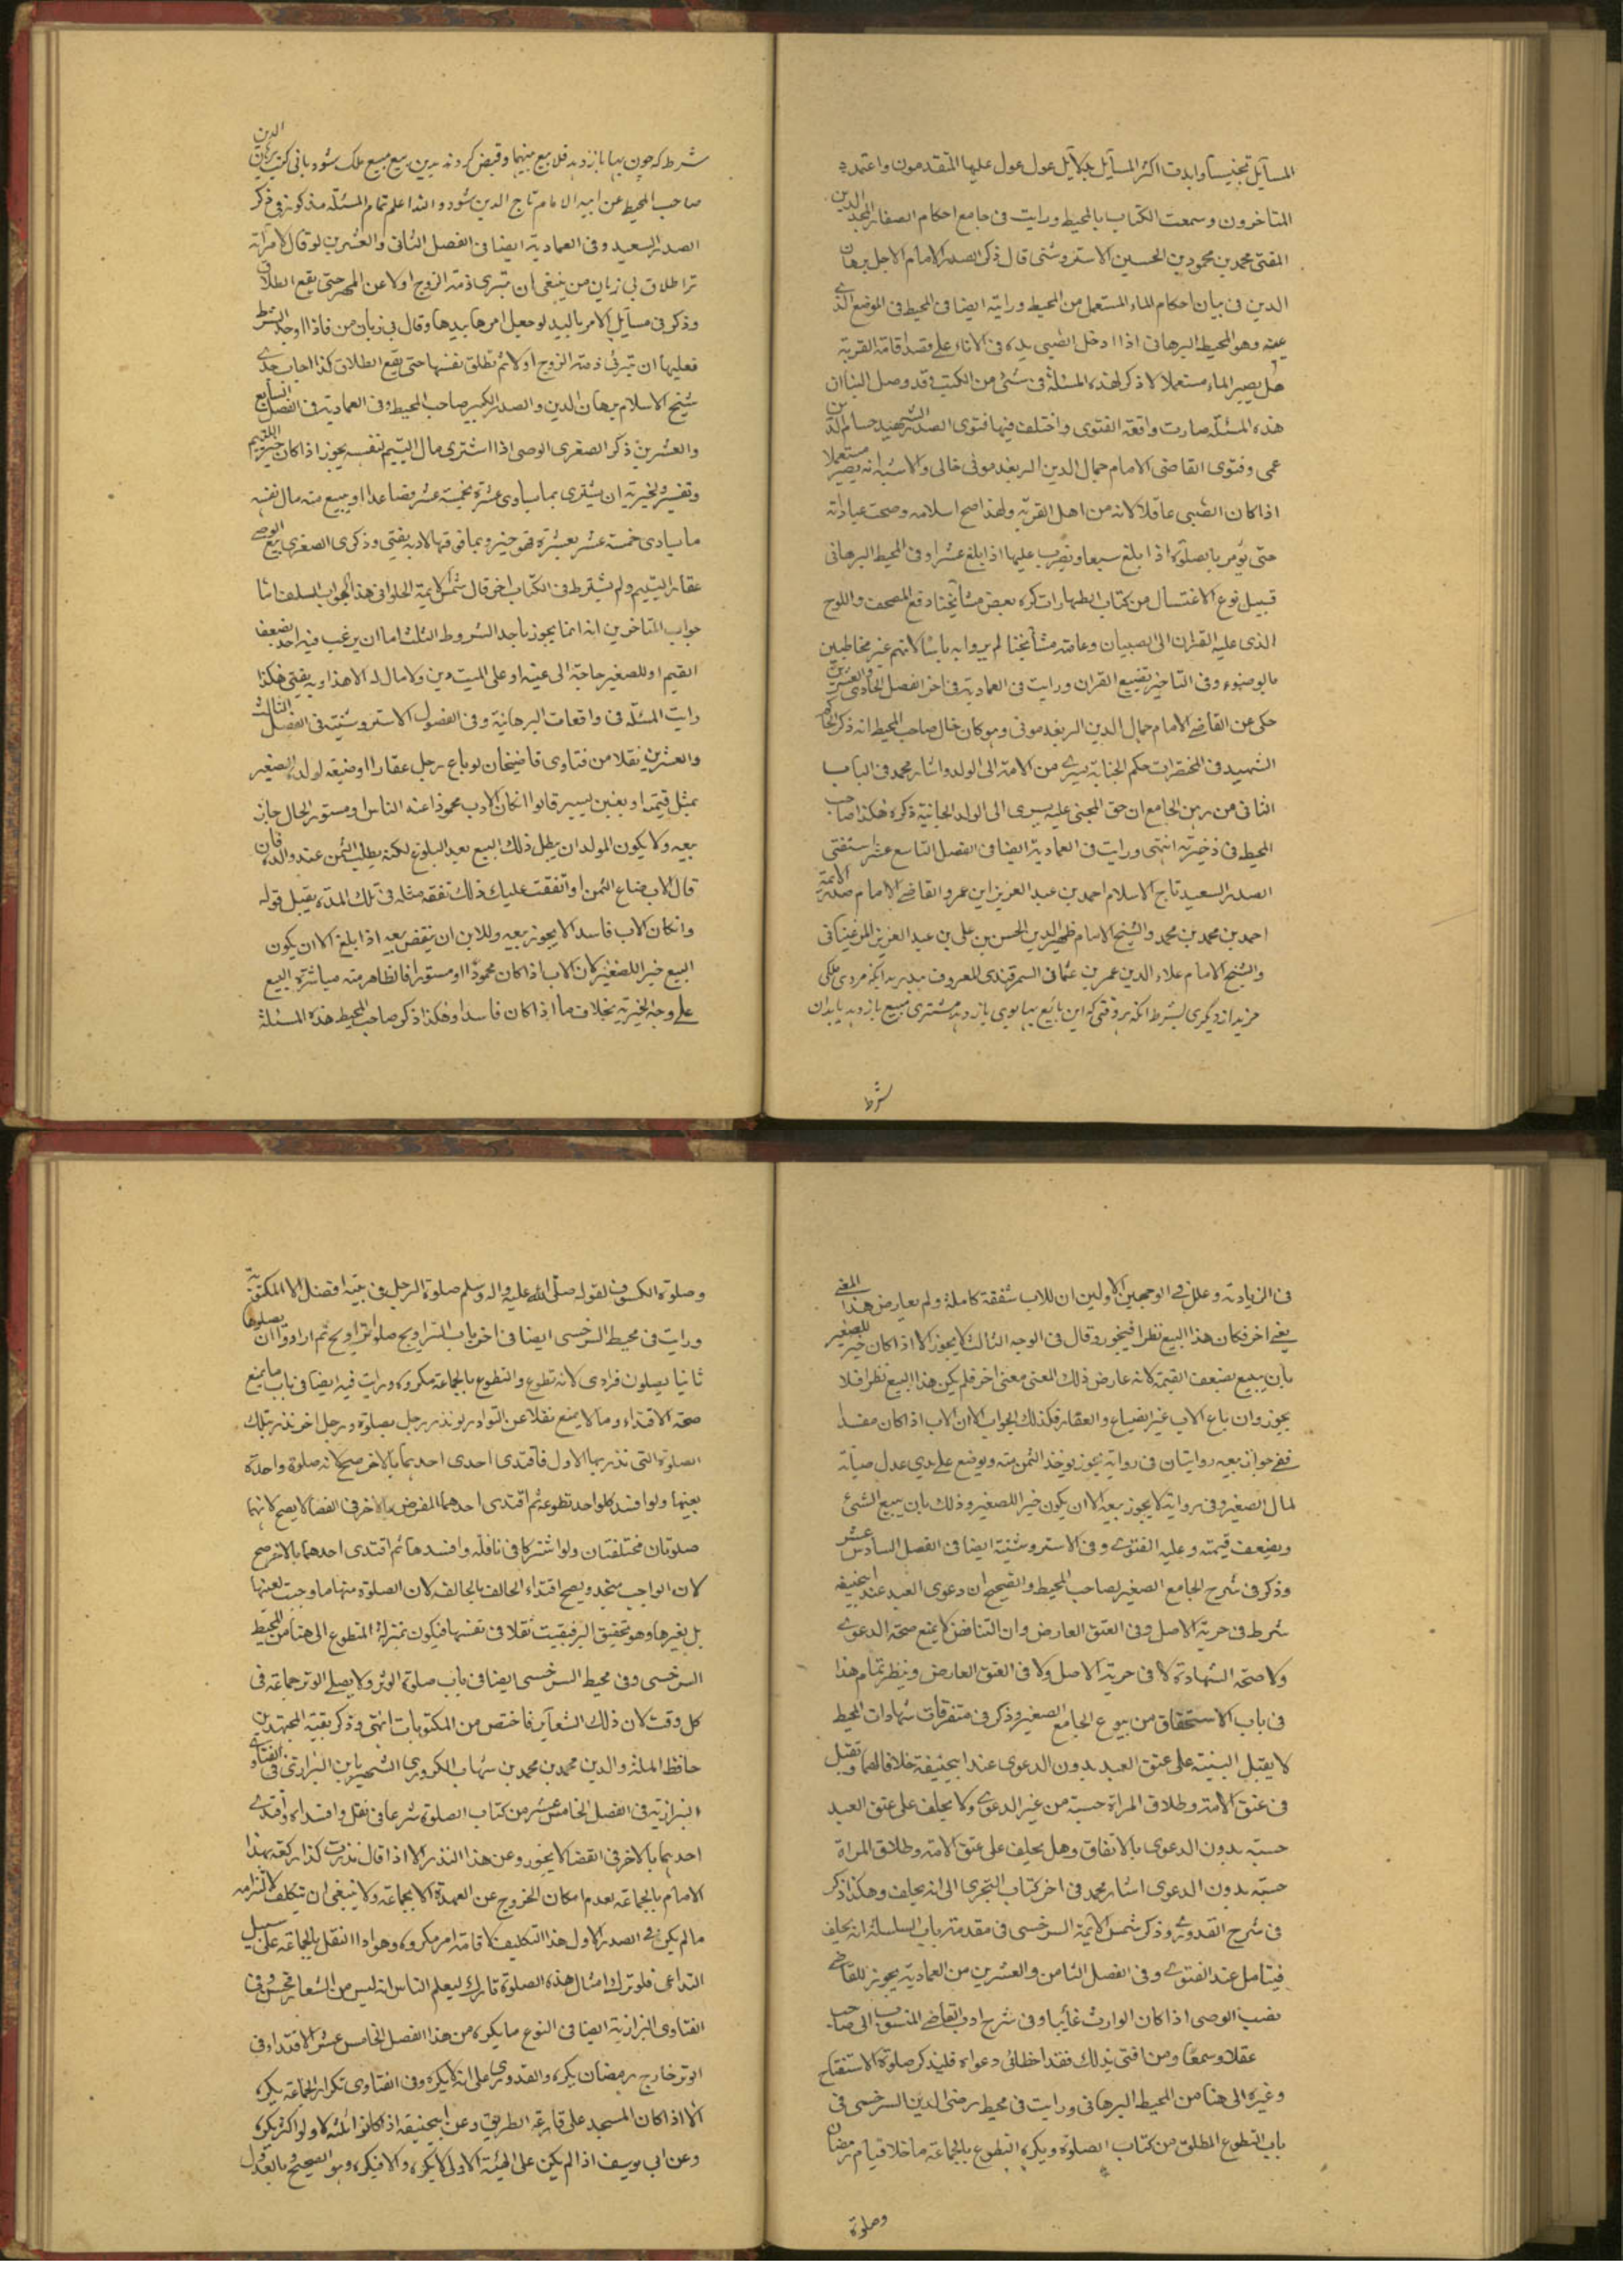 المسائل تجنيسا وايدت اكثر المسائل بدلايل عول عول عليها المتقدمون واعتمد
المتاخرون وسمعت الكتاب بالمحيط ورايت فى جامع احكام الصغار المجد الدين
المفتى محمد بن محمود بن الحسين الاستروشنى قال ذكر الصدر الامام الاجل برهان
الدين فى بيان احكام الماء المستعمل من المحيط ورايته ايضا فى المحيط فى الموضع الذى
عينه وهو المحيط البرهانى اذا ادخل الصبى يده فى الاناء على قصد اقامة القربة
هل يصير الماء مستعملا لا ذكر لهذه المسئلة فى شئ من الكتب قد وصل الينا ان
هذه المسئلة صارت واقعة الفتوى واختلف فيها فتوى الصدر الشهيد حسام الدين
عمى وفتوى القاضى الامام جمال الدين الريغدمونى خالى والاشبه انه يصير مستعملا
اذا كان الصبى عاقلا لانه من اهل القربة ولهذا صح اسلامه وصحت عباداته
حتى يؤمر بالصلوة اذا بلغ سبعا ويضرب عليها اذا بلغ عشرا وفى المحيط البرهانى
قبيل نوع الاغتسال من كتاب الطهارات كره بعض مشايخنا دفع المصحف واللوح
الذى عليه القران الى الصبيان وعامة مشايخنا لم يروا به باسا لانهم غير مخاطبين
بالوضوء وفى التاخير تضييع القران ورايت فى العمادية فى اخر الفصل الحادى والعشرين
حكى عن القاضى الامام جمال الدين الريغدمونى وهو كان خال صاحب المحيط انه ذكر الحاكم
الشهيد فى المختصرات حكم الجناية يسرى من الامة الى الولد واشار محمد فى الباب
الثانى من رهن الجامع ان حق المجنى عليه يسرى الى الولد الجانية ذكره هكذا صاحب
المحيط فى ذخيرته انتهى ورايت فى العمادية ايضا فى الفصل التاسع عشر استفتى
الصدر السعيد تاج الاسلام احمد بن عبد العزيز ابن عمر والقاضى الامام صدر الائمة
احمد بن محمد بن محمد والشيخ الامام ظهير الدين الحسن بن على بن عبد العزيز المرغينانى
والشيخ الامام علاء الدين عمر بن عثمان السمرقندى المعروف ببدر به انكه مردى ملكى
خريد از ديگرى بشرط انكه هر وقتى كه اين بايع بها بوى باز دهد مشترى مبيع باز دهد بايدان
شرط
شرط كه چون بها باز دهد فلا بيع بينهما وقبض كردند بدين بيع مبيع ملك شود يانى كتب برهان الدين
صاحب المحيط عن ابيه الامام تاج الدين شود والله اعلم تمام المسئلة مذكور فى ذكر
الصدر السعيد وفى العمادية ايضا فى الفصل الثانى والعشرين لو قال لامراته
ترا طلاق بى زيان من ينبغى ان تبرى ذمة الزوج اولا عن المهر حتى يقع الطلاق
وذكر فى مسايل الامر باليد لو جعل امرها بيدها وقال بى زيان من فاذا وجد الشرط
فعليها ان تبرئ ذمة الزوج اولا ثم تطلق نفسها حتى يقع الطلاق كذا اجاب جدى
شيخ الاسلام برهان الدين والصدر الكبير صاحب المحيط وفى العمادية فى الفصل السابع
والعشرين ذكر الصغرى الوصى اذا اشترى مال اليتيم لنفسه يجوز اذا كان خير لليتيم
وتفسير الخيرية ان يشترى بما يساوى عشرة بخمسة عشر فصاعدا او يبيع منه مال نفسه
ما يساوى خمسة عشر بعشرة فهو خير وما فوقها لا وبه يفتى وذكر فى الصغرى بيع الوصى
عقار اليتيم ولم يشترط فى الكتاب اخر قال شمس الايمة الحلوانى هذا الجواب السلف اما
جواب المتاخرين انه انما يجوز باحد الشروط الثلث اما ان يرغب فيه احد بضعف
القيم او للصغير حاجة الى عينه او على الميت دين ولا مال له الا هذا وبه يفتى هكذا
رايت المسئلة فى واقعات البرهانية وفى الفصول الاستروشنية فى الفصل الثالث
والعشرين نقلا من فتاوى قاضيخان لو باع رجل عقارا او ضيعة لولده الصغير
بمثل قيمته او بغبن يسير قالوا ان كان الاب محمودا عند الناس او مستور الحال جاز
بيعه ولا يكون للولد ان يبطل ذلك البيع بعد البلوغ لكنه يطلب الثمن عند والده فان
قال الاب ضاع الثمن او انفقت عليك ذلك نفقة مثله فى تلك المدة يقبل قوله
وان كان الاب فاسد الا يجوز بيعه وللابن ان ينقض بيعه اذا بلغ الا ان يكون
البيع خير اللصغير لان الاب اذا كان محمودا او مستورا فالظاهر منه مباشرة البيع
على وجه الخيرية بخلاف ما اذا كان فاسدا وهكذا ذكر صاحب المحيط هذه المسئلة
فى الزيادة وعلل فى الوجهين الاولين ان للاب شفقة كاملة ولم يعارض هذا المعنى
معنى اخر فكان هذا البيع نظرا فيجوز وقال فى الوجه الثالث لا يجوز الا اذا كان خير للصغير
بان يبيع بضعف القيمة لانه عارض ذلك المعنى معنى اخر فلم يكن هذا البيع نظرا فلا
يجوز وان باع الاب غير الضياع والعقار فكذلك الجواب الا ان الاب اذا كان مفسدا
ففى جواز بيعه روايتان فى رواية يجوز يوخذ الثمن منه ويوضع على يدى عدل صيانة
لمال الصغير وفى رواية لا يجوز بيعه الا ان يكون خيرا للصغير وذلك بان يبيع الشئ
وبضعف قيمته وعليه الفتوى وفى الاستروشنية ايضا فى الفصل السادس عشر
وذكر فى شرح الجامع الصغير لصاحب المحيط والصحيح ان دعوى العبد عند ابيحنيفة
شرط فى حرية الاصل وفى العتق العارض وان التناقض لا يمنع صحة الدعوى
ولا صحة الشهادة لا فى حرية الاصل ولا فى العتق العارض وينظر تمام هذا
فى باب الاستحقاق من بيوع الجامع الصغير وذكر فى متفرقات شهادات المحيط
لا يقبل البينة على عتق العبد بدون الدعوى عند ابيحنيفة خلافا لهما وتقبل
فى عتق الامة وطلاق المراة حسبة من غير الدعوى ولا يحلف على عتق العبد
حسبة بدون الدعوى بالاتفاق وهل يحلف على عتق الامة وطلاق المراة
حسبة بدون الدعوى اشار محمد فى اخر كتاب التحرى الى انه يحلف وهكذا ذكر
فى شرح القدورى وذكر شمس الايمة السرخسى فى مقدمة باب السلسلة انه يحلف
فيتامل عند الفتوى وفى الفصل الثامن والعشرين من العمادية يجوز للقاضى
نصب الوصى اذا كان الوارث غايبا وفى شرح ادب القاضى المنسوب الى صاحب
عقلا وسمعا ومن افتى بذلك فقد اخطا فى دعواه فليذكر صلوة الاستفتاح
وغيره الى هنا من المحيط البرهانى ورايت فى محيط رضى الدين السرخسى فى
باب التطوع المطلق من كتاب الصلوة ويكره التطوع بالجماعة ما خلا قيام رمضان
وصلوة
وصلوة الكسوف لقوله صلى الله عليه واله وسلم صلوة الرجل فى بيته افضل الا المكتوبة
ورايت فى محيط السرخسى ايضا فى اخر باب التراويح صلوا تراويح ثم ارادوا ان يصلوها
ثانيا يصلون فرادى لانه تطوع والتطوع بالجماعة مكروه ورايت فيه ايضا فى باب ما يمنع
صحة الاقتداء وما لا يمنع نقلا عن النوادر لو نذر رجل بصلوة ورجل اخر نذر بتلك
الصلوة التى نذر بها الاول فاقتدى احدى احدهما بالاخر صح لانه صلوة واحدة
بعينها ولو افسد كلواحد تطوعه ثم اقتدى احدهما المفرض بالاخر فى القضا لا يصح لانهما
صلوتان مختلفتان ولو اشتركا فى نافلة وافسدها ثم اقتدى احدهما بالاخر صح
لان الواجب متحد ويصح اقتداء الحالف بالحالف لان الصلوة منهما ما وجبت لعينها
بل لغيرها وهو تحقيق البر فبقيت نفلا فى نفسها فيكون بمنزلة المتطوع الى هنا من المحيط
السرخسى وفى محيط السرخسى ايضا فى باب صلوة الوتر ولا يصلى الوتر جماعة فى
كل وقت لان ذلك الشعاير فاختص من المكتوبات انتهى وذكر بقية المجتهدين
حافظ الملة والدين محمد بن محمد بن شهاب الكرورى الشهير بابن البزازى فى الفتاوى
البزازية فى الفصل الخامس عشر من كتاب الصلوة شرعا فى نفل وافسداه واقتدى
احدهما بالاخر فى القضا لا يجوز وعن هذا النذر الا اذا قال نذرت كذا ركعة بهذا
الامام بالجماعة لعدم امكان الخروج عن العهدة الا بجماعة ولا ينبغى ان يتكلف لالتزام
ما لم يكن فى الصدر الاول هذا التكليف لاقامة امر مكروه وهو اداء النفل بالجماعة على سبيل
التداعى فلو ترك امثال هذه الصلوة تارك ليعلم الناس انه ليس من الشعار فحسن وفى
الفتاوى البزازية ايضا فى النوع ما يكره من هذا الفصل الخامس عشر الاقتداء فى
الوتر خارج رمضان يكره والقدورى على انه لا يكره وفى الفتاوى تكرار الجماعة يكره
الا اذا كان المسجد على قارعة الطريق وعن ابيحنيفة اذا كانوا ثلثة لا ولو اكثر يكره
وعن ابى يوسف اذا لم يكن على الهيئة الاولى لا يكره والا فيكره وهو الصحيح وبالعدول